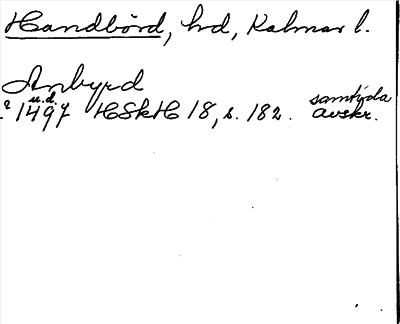 Handbörd, hd, Kalmar l.
Anbyrd
u.d.
? 1497 HSkH 18, s. 182. samtida avskr.